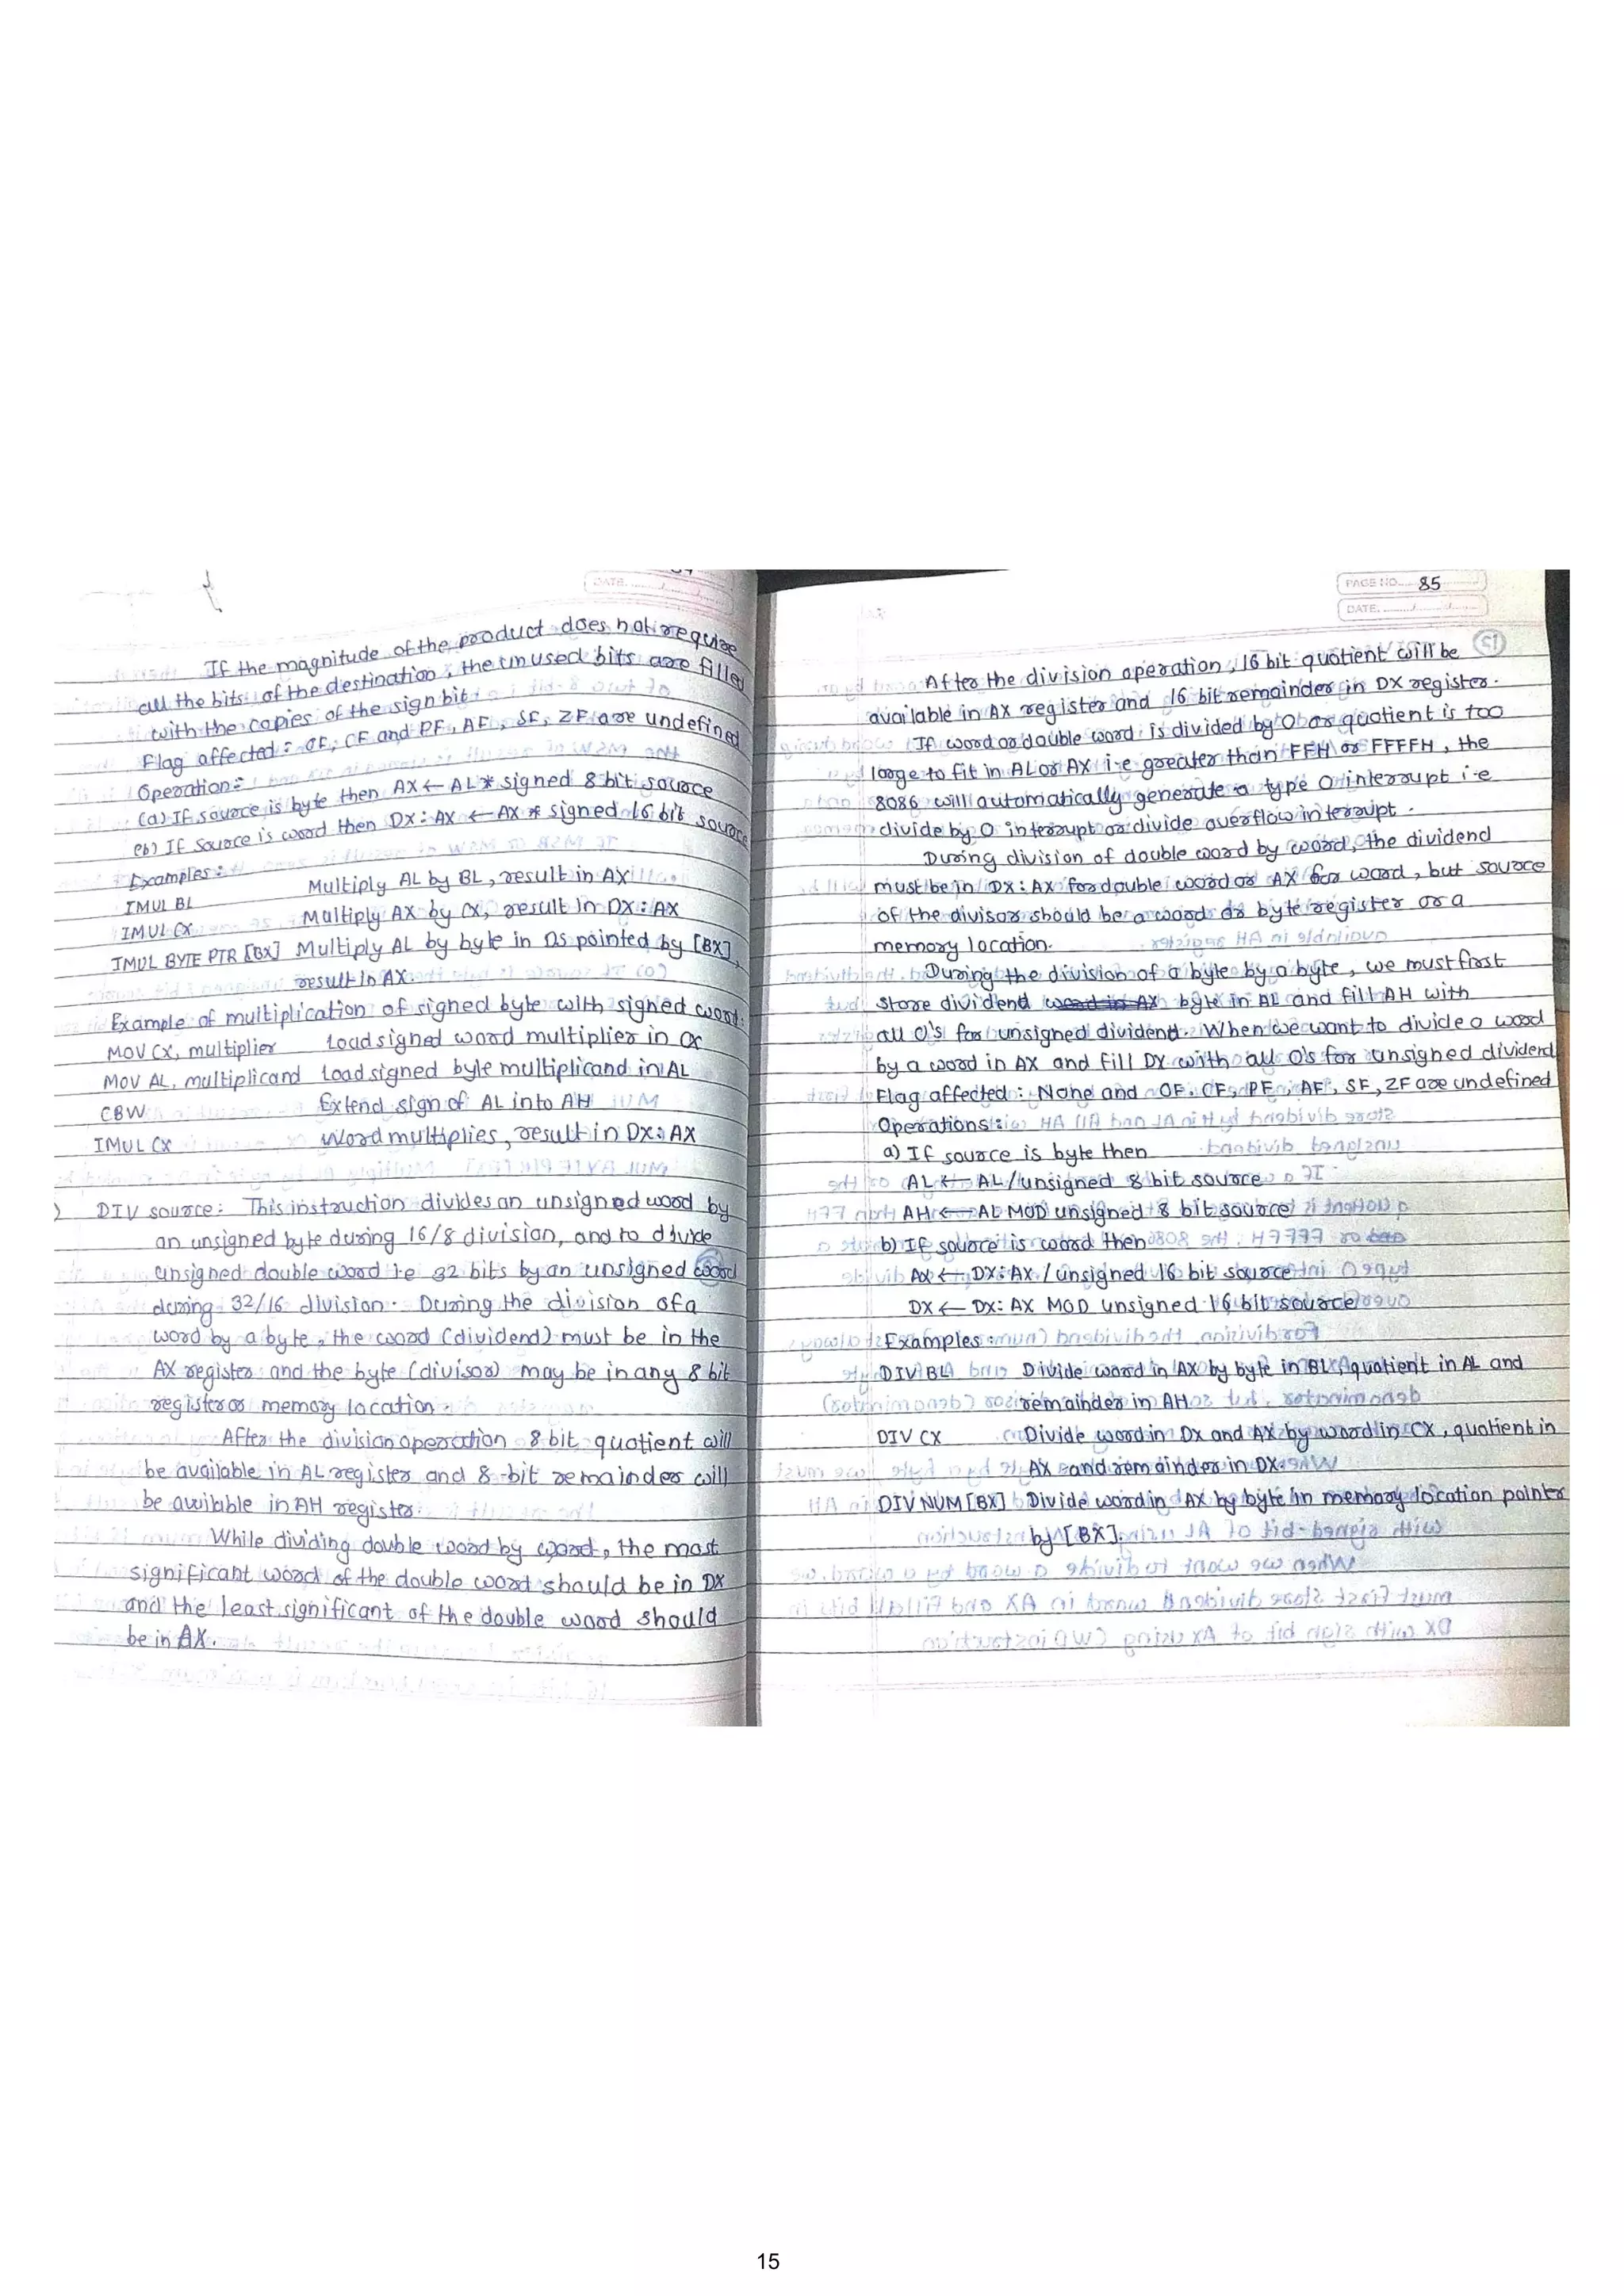 DATE.
If the magnitude of the product does not require
all the bits of the destination, the unused bits are filled
with the copies of the sign bit.
Flag affected : OF, CF and PF, AF, SF, ZF are undefined
Operation :
(a) If source is byte then AX ← AL * signed 8 bit source
(b) If source is word then DX : AX ← AX * signed 16 bit source
Examples :
IMUL BL Multiply AL by BL, result in AX
IMUL CX Multiply AX by CX, result in DX : AX
IMUL BYTE PTR [BX] Multiply AL by byte in DS pointed by [BX],
result in AX.
Example of multiplication of signed byte with signed word.
MOV CX, multiplier Load signed word multiplier in CX
MOV AL, multiplicand Load signed byte multiplicand in AL
CBW Extend sign of AL into AH
IMUL CX Word multiplies, result in DX : AX
) DIV source : This instruction divides an unsigned word by
an unsigned byte during 16/8 division, and to divide
unsigned double word i.e 32 bits by an unsigned word
during 32/16 division. During the division of a
word by a byte, the word (dividend) must be in the
AX register and the byte (divisor) may be in any 8 bit
register or memory location.
After the division operation 8 bit quotient will
be available in AL register and 8-bit remainder will
be available in AH register.
While dividing double word by word, the most
significant word of the double word should be in DX
and the least significant of the double word should
be in AX.
PAGE NO. 85
DATE.
51
After the division operation, 16 bit quotient will be
available in AX register and 16 bit remainder in DX register.
If word or double word is divided by 0 or quotient is too
large to fit in AL or AX i.e greater than FFH or FFFFH, the
8086 will automatically generate a type 0 interrupt i.e
divide by 0 interrupt or divide overflow interrupt.
During division of double word by word, the dividend
must be in DX : AX for double word or AX for word, but source
of the divisor should be a word or byte register or a
memory location.
During the division of a byte by a byte, we must first
store dividend word in AX byte in AL and fill AH with
all 0's for unsigned dividend. When we want to divide a word
by a word in AX and fill DX with all 0's for unsigned dividend
Flag affected : None and OF, CF, PF, AF, SF, ZF are undefined
Operations :
a) If source is byte then
AL ← AL / unsigned 8 bit source
AH ← AL MOD unsigned 8 bit source
b) If source is word then
AX ← DX : AX / unsigned 16 bit source
DX ← DX : AX MOD unsigned 16 bit source
Examples :
DIV BL Divide word in AX by byte in BL, quotient in AL and
remainder in AH
DIV CX Divide word in DX and AX by word in CX, quotient in
AX and remainder in DX.
DIV NUM [BX] Divide word in AX by byte in memory location pointer
by [BX].
15